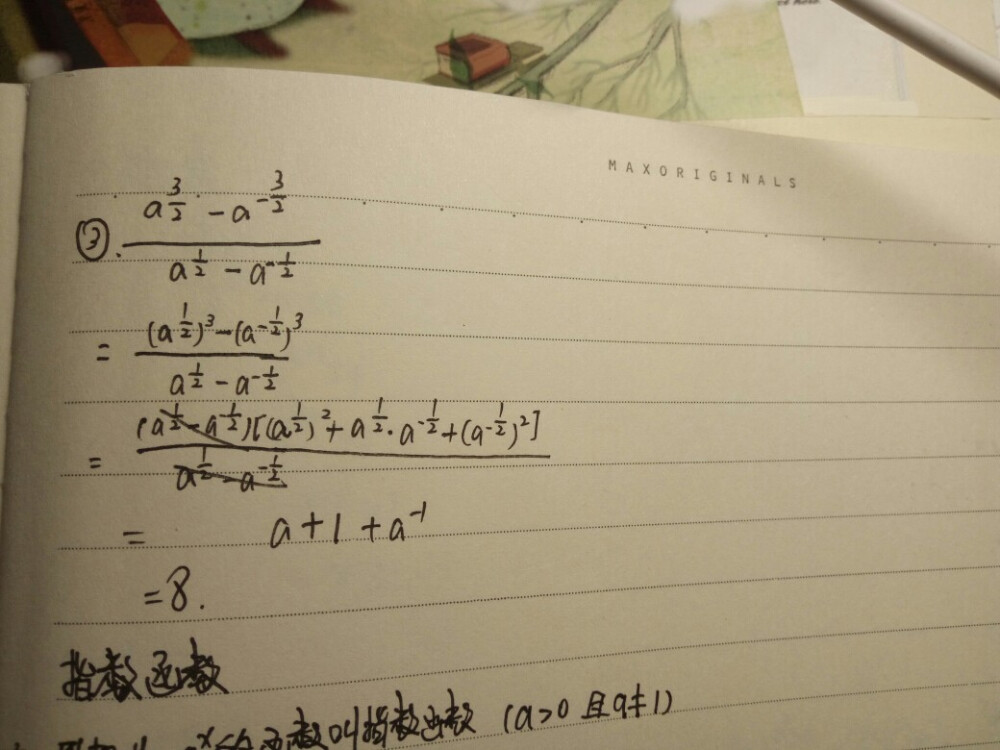 MAXORIGINALS
③. \frac{a^{\frac{3}{2}} - a^{-\frac{3}{2}}}{a^{\frac{1}{2}} - a^{-\frac{1}{2}}}
= \frac{(a^{\frac{1}{2}})^3 - (a^{-\frac{1}{2}})^3}{a^{\frac{1}{2}} - a^{-\frac{1}{2}}}
= \frac{(a^{\frac{1}{2}} - a^{-\frac{1}{2}})[(a^{\frac{1}{2}})^2 + a^{\frac{1}{2}} \cdot a^{-\frac{1}{2}} + (a^{-\frac{1}{2}})^2]}{a^{\frac{1}{2}} - a^{-\frac{1}{2}}}
= a + 1 + a^{-1}
= 8.
指数函数
a^x的函数叫指数函数 (a>0 且 a≠1)